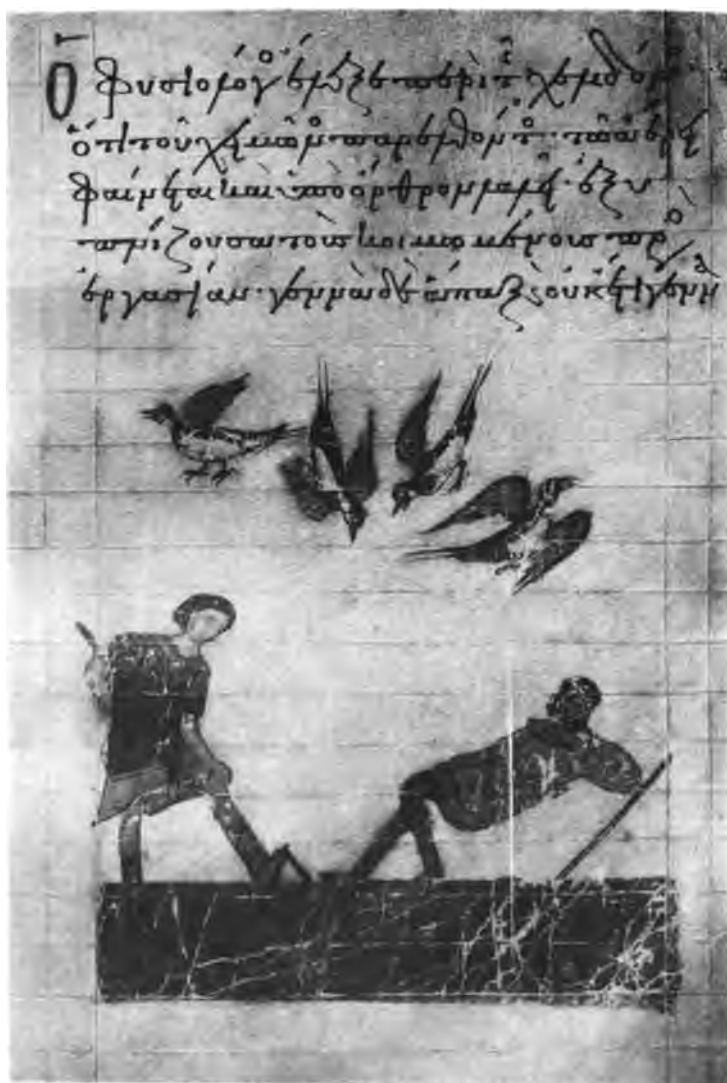 Ὁ φυσιολόγ ἔλεξε περὶ τ χελιδόν
ὅτι τοῦ χειμῶν παρελθόντ τῶ ἔαρι
φαίνεται καὶ ὑπὸ ὄρθρον λαλεῖ ἐξυ
πνίζουσα τοὺς κοιμωμένους πρὸ
ἐργασίαν· γεννᾶ δὲ ἅπαξ οὐκέτι γεννᾶ